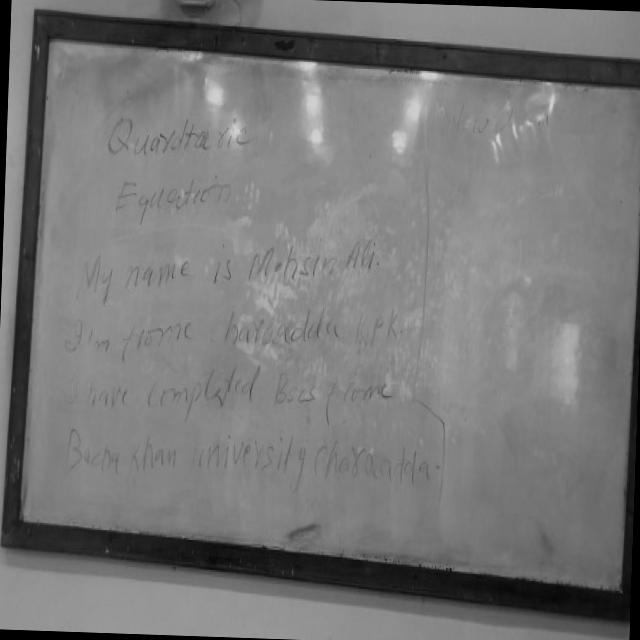 Quardtaric
Equation
My name is Mohsin Ali.
I'm frome charsadda kpk.
I have completed Bscs frome
Bacha khan university charsadda.